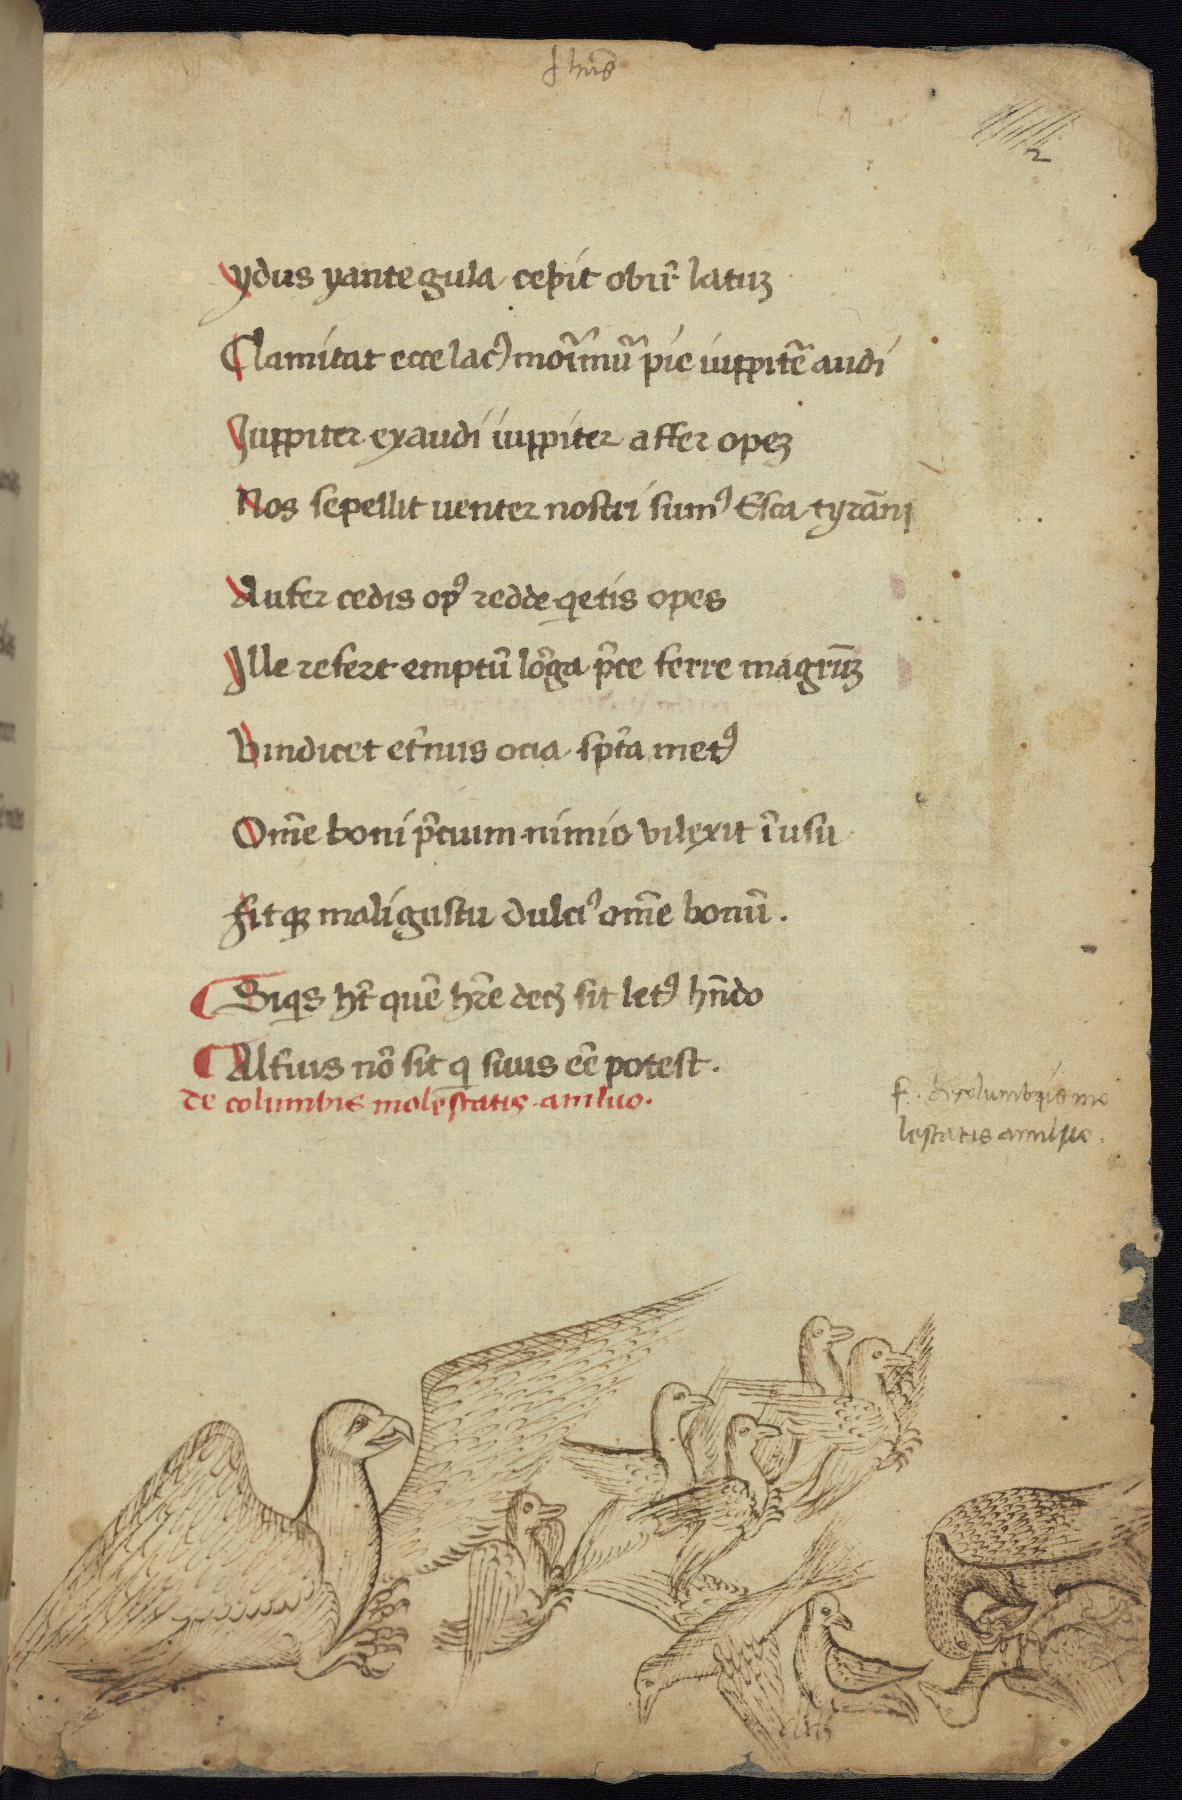 Ihūs
2
ydus yante gula cepit obir̄ latuʒ
Clamitat ecce lacꝰ morīmū pie iuppitē audi
Iuppiter exaudi iuppiter affer opeʒ
Nos sepellit uenter nostri sumꝰ Esca tyrāni
Aufer cedis opꝰ redde qetis opes
Ille refert emptū lōga p̄ce ferre magrūʒ
Vindicet et̄nus ocia spt̄a metꝰ
Om̄e boni p̄cium nimio vilexit ī usu
Fitqʒ mali gustu dulciꝰ om̄e bonū.
Siqs ht̄ quē hr̄e decʒ sit letꝰ hn̄do
Alt̄ius nō sit q suus eē potest.
de columbis molestatis amiluo.
f. de columbis mo
lestatis amiluo.